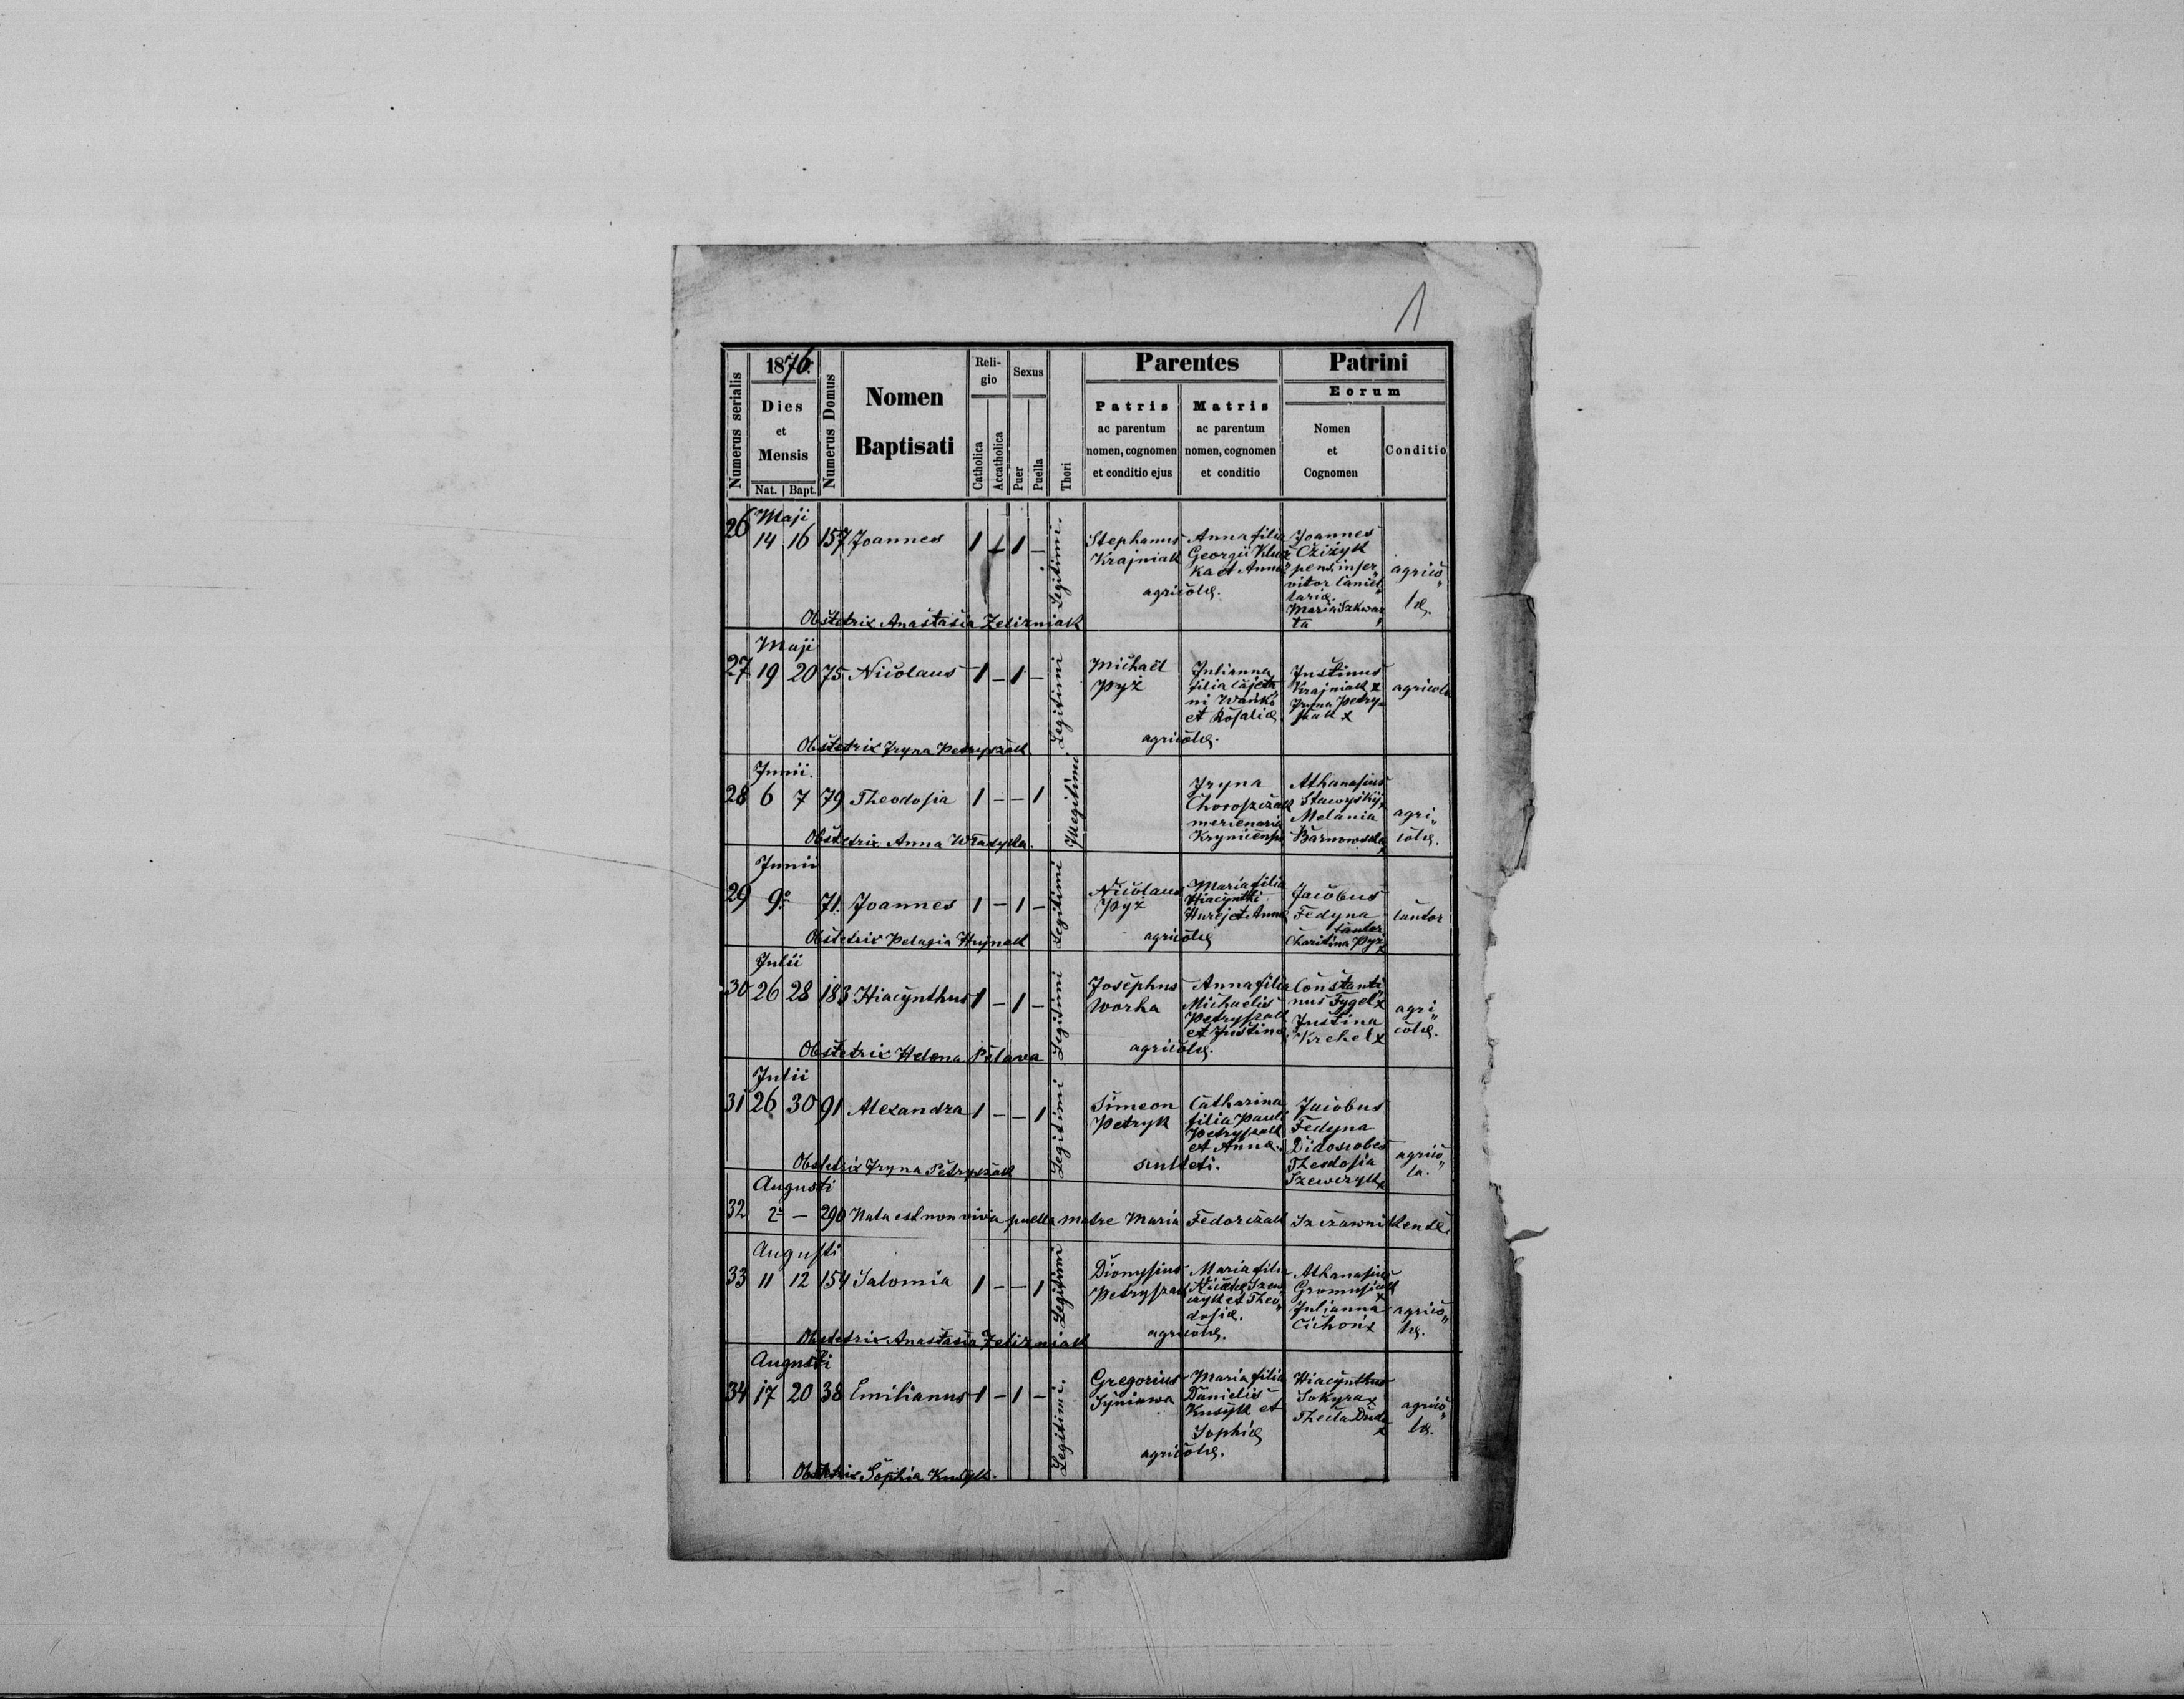 1
Numerus serialis
1876.
Dies
et
Mensis
Nat. | Bapt.
Numerus Domus
Nomen
Baptisati
Reli-
gio
Catholica
Accatholica
Sexus
Puer
Puella
Thori
Parentes
Patris
ac parentum
nomen, cognomen
et conditio ejus
Matris
ac parentum
nomen, cognomen
et conditio
Patrini
Eorum
Nomen
et
Cognomen
Conditio
Maji
26 14 16 157 Joannes 1 1 –
Legitimi.
Stephanus
Krajniak
Anna filia
Georgii
ka et Annæ
agricolæ.
Joannes
Cziżyk
Maria Szkwar
ta
agrico„
læ.
Obstetrix Anastasia Zelizniak
Maji
27 19 20 75 Nicolaus 1 – 1 –
Legitimi
Michaël
Pyż
Julianna
filia Cajeta
ni Wańko
et Rosaliæ
agricolæ.
Justinus
Krajniak x
Iryna Petry-
szak x
agricolæ
Obstetrix Iryna Petryszak
Junii.
28 6 7 79 Theodosia 1 – – 1
Illegitimi
Iryna
Choroszczak
mercenaria
Athanasius
Stawyskij x
Melania
Barnowska x
agri„
colæ.
Obstetrix Anna Władyka.
Junii
29 9º 71. Joannes 1 – 1 –
Legitimi
Nicolaus
Pyż
Maria filia
Hiacynthi
agricolæ
Jacobus
Fedyna
cantor
Charitina Pyż x
cantor
Obstetrix Pelagia Hrynak
Julii
30 26 28 183 Hiacynthus 1 – 1 –
Legitimi
Josephus
Worha
Anna filia
Michaelis
Petryszak
et Justinæ
agricolæ.
Constanti„
nus Fygel x
Justina
Krehel x
agri„
colæ.
Obstetrix Helena
Julii
31 26 30 91 Alexandra 1 – – 1
Legitimi
Simeon
Petryk
Catharina
filia Pauli
Petryszak
et Annæ.
sculteti.
Jacobus
Fedyna
Theodosia
Szewczyk x
agrico„
la.
Obstetrix Iryna Petryszak
Augusti
32 2º – 290 Nata est non viva puella matre Maria Fedorczak
Augusti
33 11 12 154 Salomia 1 – – 1
Legitimi
Dionysius
Petryszak
Maria filia
Szew
czyk et Theo„
dosiæ.
agricolæ.
Athanasius
Gromusiak
x
Julianna
Cichoń x
agrico„
læ.
Obstetrix Anastasia Zelizniak
Augusti
34 17 20 38 Emilianus 1 – 1 –
Legitimi.
Gregorius
Syniawa
Maria filia
Danielis
Kusyk et
Sophiæ
agricolæ.
Hiacynthus
Sokyra x
Thecla Duda
x
agrico„
læ.
Obstetrix Sophia Kusyk.